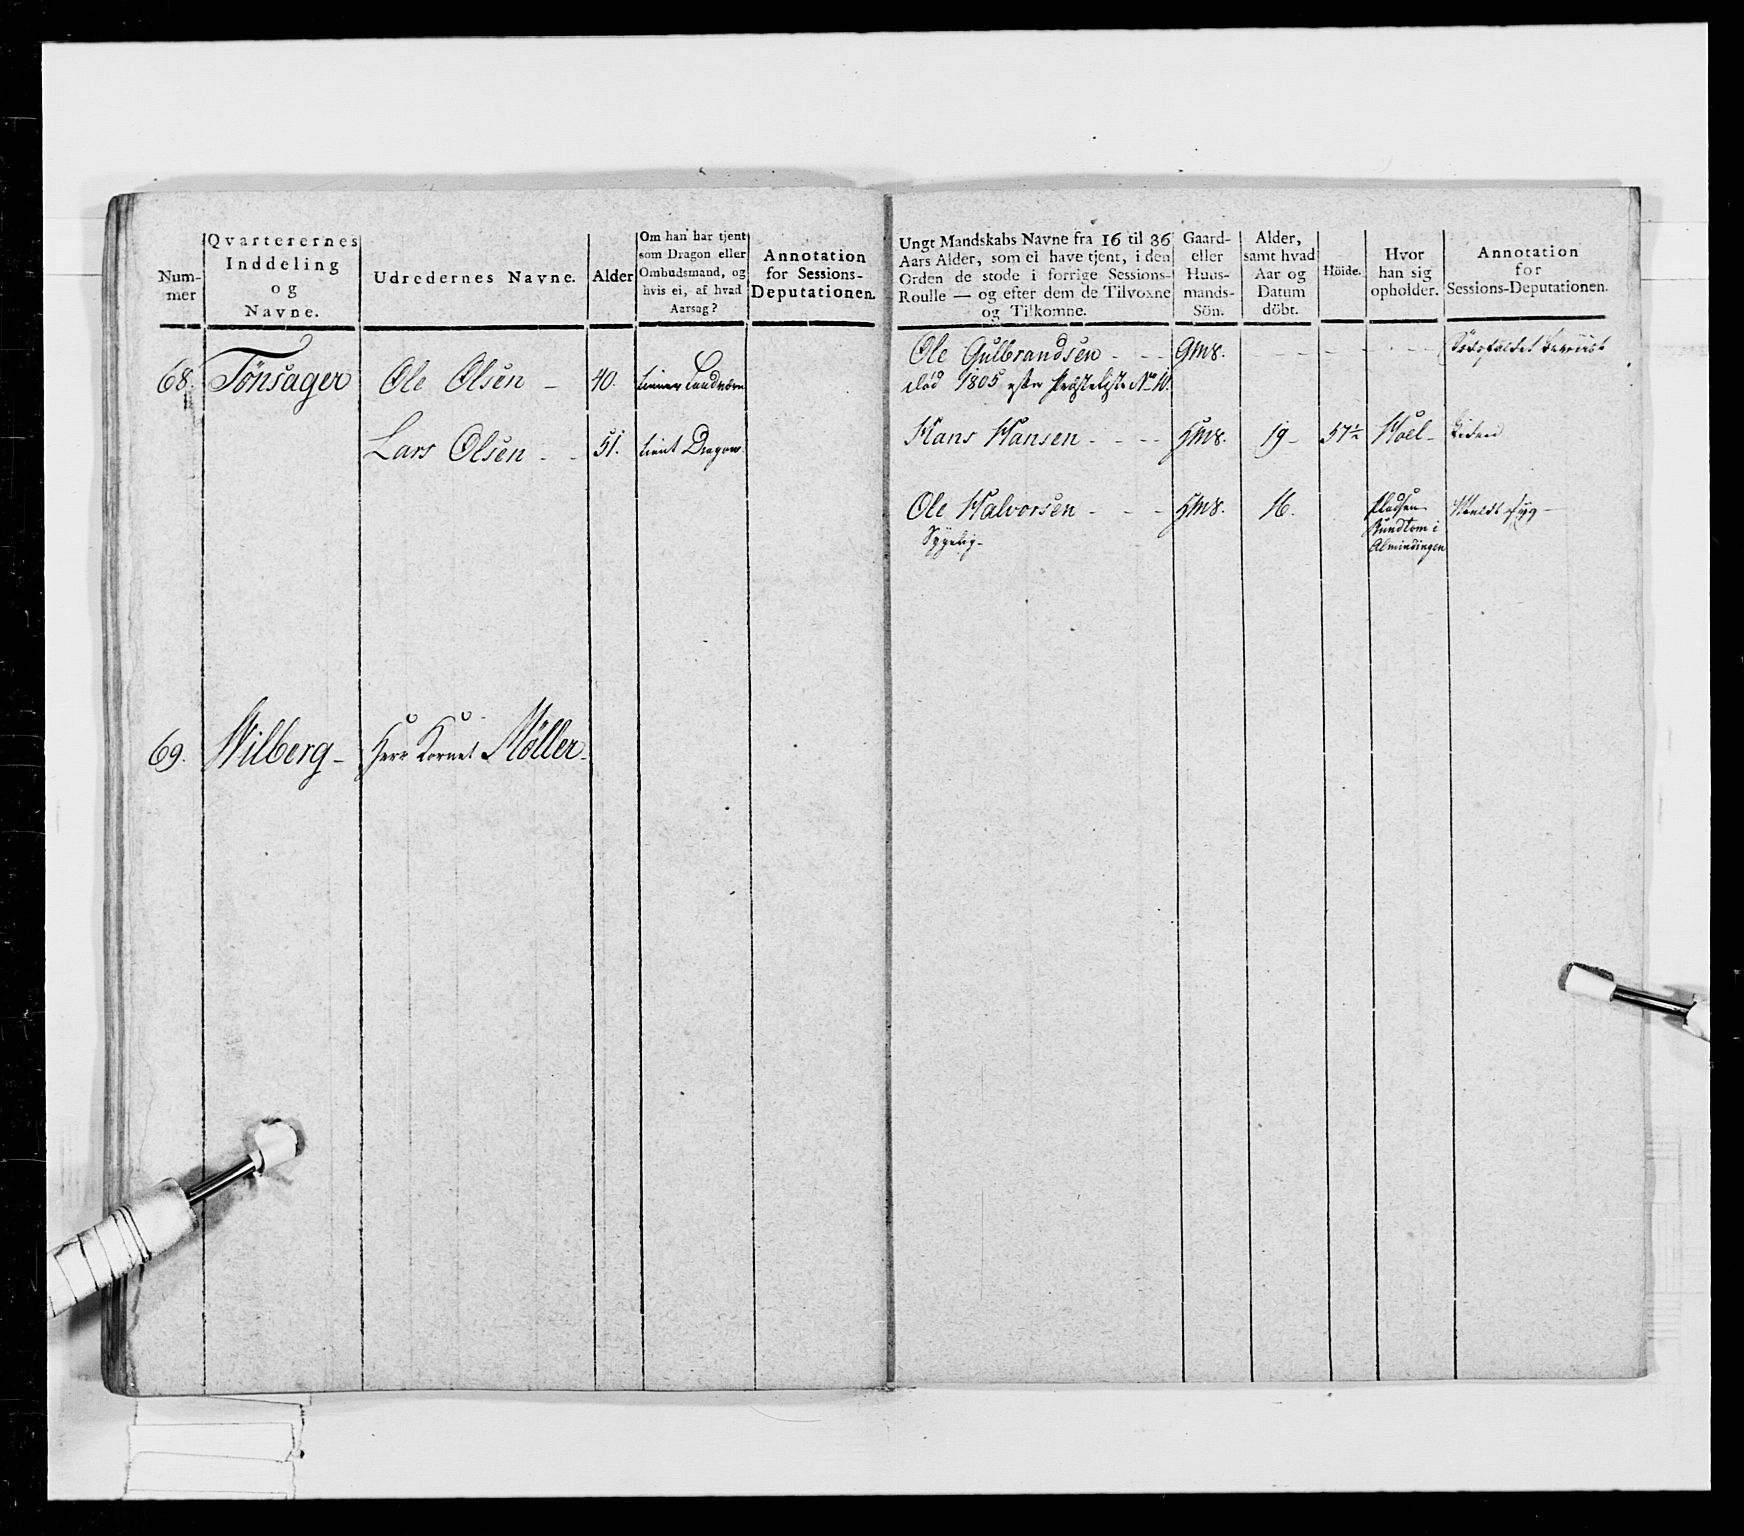 Num-
mer
Qvarterernes
Inddeling
og
Navne.
Udredernes Navne.
Alder
Om han har tjent
som Dragon eller
Ombudsmand, og
hvis ei, af hvad
Aarsag?
Annotation
for Sessions-
Deputationen.
68. Tönsager Ole Olsen - 40. tiener Landværn
Lars Olsen - - 51. tient Dragon.
69. Wilberg - Herr Kornet Möller -
Ungt Mandskabs Navne fra 16 til 36
Aars Alder, som ei have tjent, i den
Orden de stode i forrige Sessions-
Roulle — og efter dem de Tilvoxne
og Tilkomne.
Gaard-
eller
Huus-
mands-
Sön.
Alder,
samt hvad
Aar og
Datum
döbt.
Höide.
Hvor
han sig
opholder.
Annotation
for
Sessions-Deputationen.
Ole Gulbrandsen - - - GMS.
död 1805 efter Præsteliste No 10.
Hans Hansen - - - HMS. 19 - 57½ Hoel -
Ole Halvorsen - - - HMS. 16. Pladsen
Sygelig - Rundtom i
Almindingen